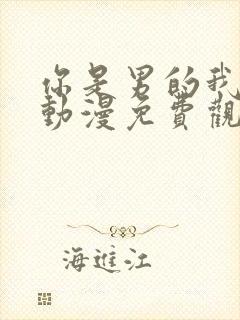 你是男的我
動漫免費觀
海進江